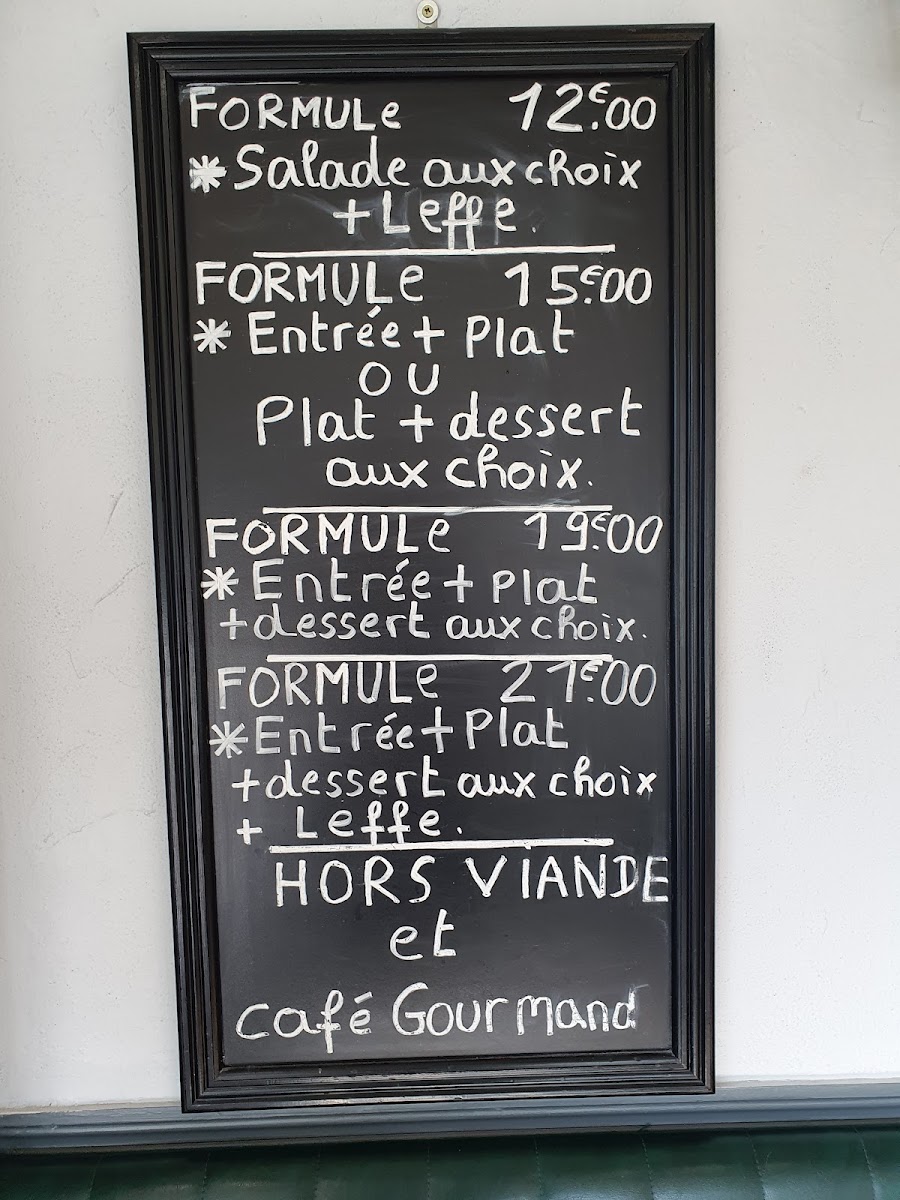 FORMULe 12€.00
* Salade aux choix
+ Leffe.
FORMULe 15€.00
* Entrée + Plat
OU
Plat + dessert
aux choix.
FORMULe 19€.00
* Entrée + Plat
+ dessert aux choix.
FORMULe 21€.00
* Entrée + Plat
+ dessert aux choix
+ Leffe.
HORS VIANDE
et
café Gourmand